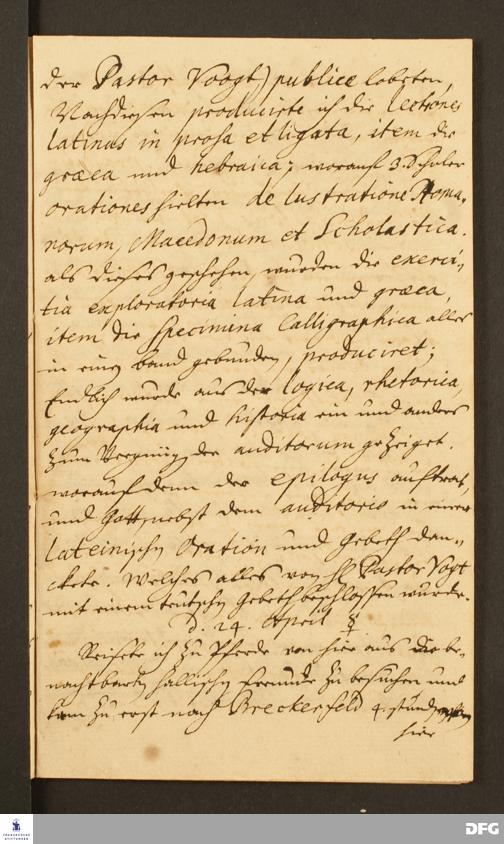 der Pastor Voogt) publice lobeten,
Nachdiesen producirte ich die lectiones
latinas in prosa et ligata, item die
græca und hebraica; worauf 3. Schüler
orationes hielten de lustratione Roma-
norum, Macedonum et Scholastica.
als dieses geschehen, wurden die exerci-
tia exploratoria latina und græca,
item die Specimina Calligraphica alle
in einen band gebunden, produciret;
Endlich wurde aus der logica, rhetorica,
geographia und historia ein und anders
zum Vergnüg der auditorum gezeiget.
worauf denn der epilogus auftrat,
und Gott nebst dem auditorio in einer
Lateinischen Oration und Gebeth dan-
ckete. Welches alles von H Pastor Vogt
mit einem teutschen Gebeth beschlossen wurde.
d. 24. April
Reisete ich zu Pferde von hier aus die be-
nachbarten Hallischen freunde zu besuchen und
kam zu erst nach Breckerfeld 4. stunden von
hier
FRANCKESCHE STIFTUNGEN
DFG